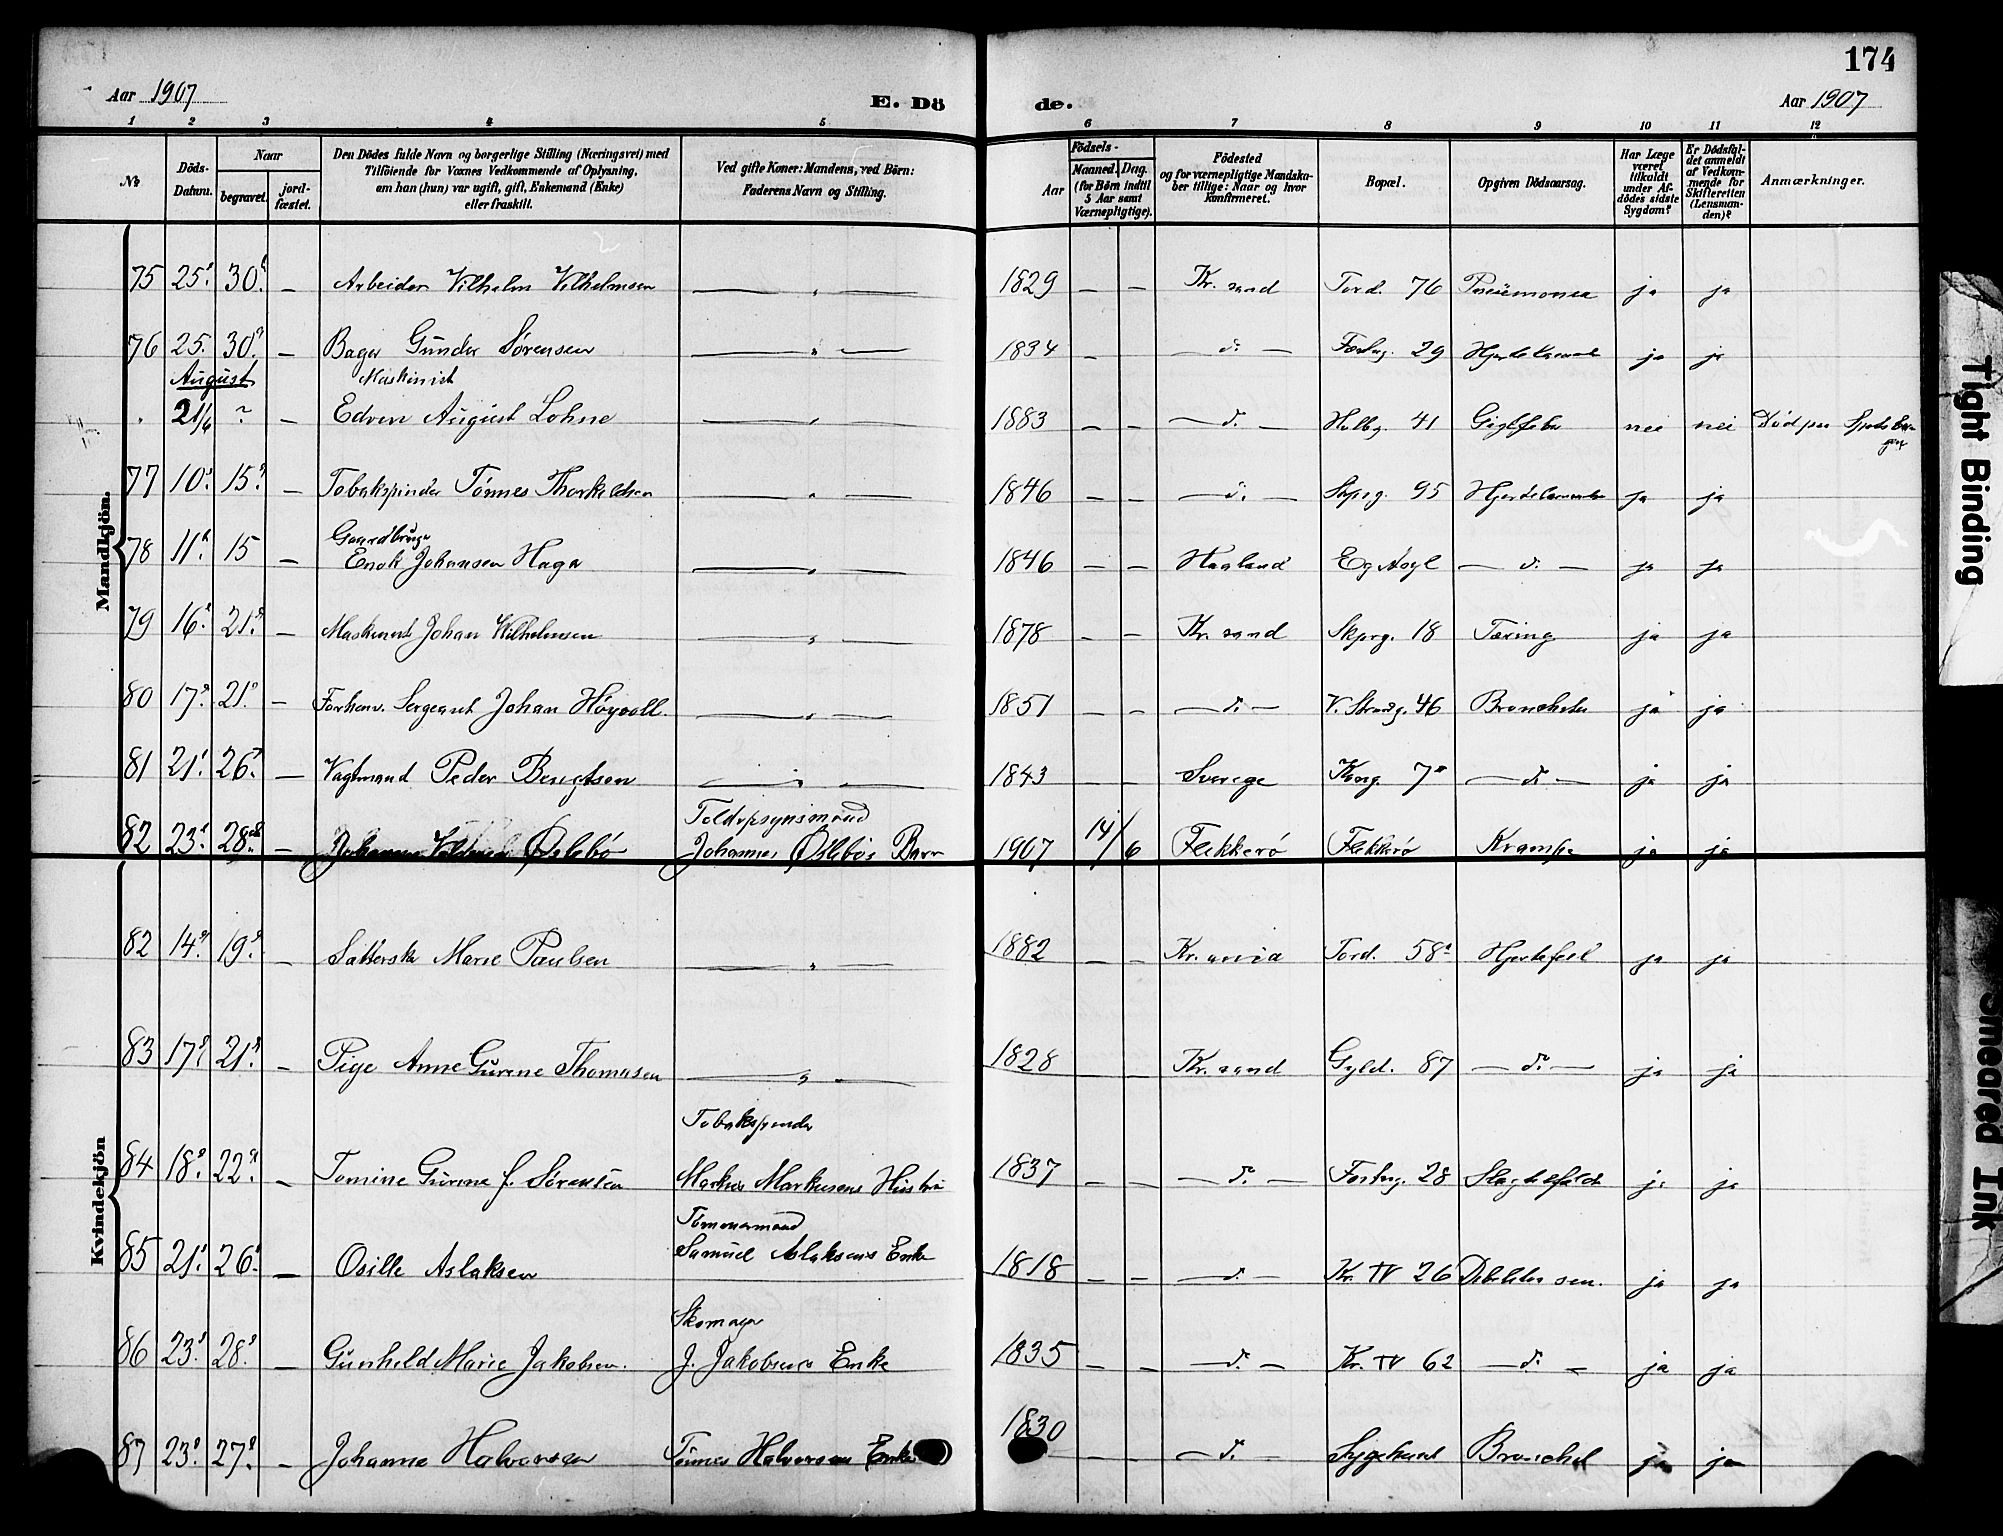 174
Aar 1907
E. Dö
de.
Aar 1907
1 2 3 4 5 6 7 8 9 10 11 12
№
Döds-Datum.
Naar
begravet.
jord-fæstet.
Den Dödes fulde Navn og borgerlige Stilling (Næringsvei) med
Tilföiende for Voxnes Vedkommende af Oplysning,
om han (hun) var ugift, gift, Enkemand (Enke)
eller fraskilt.
Ved gifte Koner: Mandens, ved Börn:
Faderens Navn og Stilling.
Födsels-
Aar
Maaned. Dag.
(for Börn indtil
5 Aar samt
Værnepligtige).
Födested
og for værnepligtige Mandska-
ber tillige: Naar og hvor
konfirmeret.
Bopæl.
Opgiven Dödsaarsag.
Har Læge
været
tilkaldt
under Af-
dödes sidste
Sygdom?
Er Dödsfal-
det anmeldt
af Vedkom-
mende for
Skifteretten
(Lensman-
den)?
Anmærkninger.
Mandkjön.
75 25. 30. — Arbeider Vilhelm Vilhelmsen — " — 1829 — — Kr.sand Tord. 76 Pneumonia ja ja
76 25. 30. — Bager Gunder Sörensen — " — 1834 — — d. — Festng. 29 ja ja
August
Maskinist
21/6 ? — Edvin August Lohne — " — 1883 — — — d. — Holbg. 41 Gigtfeber nei nei Död paa Spidsber-
gen
77 10. 15. — Tobakspinder Tönnes Thorkildsen — " — 1846 — — — d. — Skprg. 95 ja ja
Gaardbruger
78 11. 15 — Enok Johansen Haga — " — 1846 — — Haaland Eg Asyl — d. — ja ja
79 16. 21. — Maskinist Johan Wilhelmsen — " — 1878 — — Kr.sand Skprg. 18 Tæring ja ja
80 17. 21. — Forhenv. Sergeant Johan Höyvoll. — " — 1851 — — — d. — V. Strandg. 46 Bronchitis ja ja
81 21. 26. — Vagtmand Peder Bengtsen — " — 1843 — — Sverige Kong. 7 — d. — ja ja
Toldopsynsmand
82 23. 28. — Johannes Öslebö Johannes Öslebös Barn 1907 14/6 Flekkerö Flekkerö Krampe ja ja
Kvindekjön
82 14. 19. — Marie Paulsen — " — 1882 — — Kr.ania Tord. 58 Hjertefeil ja ja
83 17. 21. — Pige Anne Gurine Thomasen — " — 1828 — — Kr.sand Gyld. 87 — d. — ja ja
Tobakspinder
84 18. 22. — Tomine Gurine f. Sörensen Markus Markusens Hustru 1837 — — — d. — Festng. 28 Slagtilfælde ja ja
Tömmermand
85 21. 26. — Osille Aslaksen Samuel Aslaksens Enke 1818 — — — d. — Kr. IV 26 Debilitas sen. ja ja
Skomager
86 23. 28. — Gunhild Marie Jakobsen. J. Jakobsens Enke 1835 — — — d. — Kr. IV 62 — d. — ja ja
87 23. 27. — Johanne Halvorsen Tönnes Halvorsens Enke 1830 — — — d. — Sygehuset Bronchit ja ja
Tight Binding
Smeared Ink